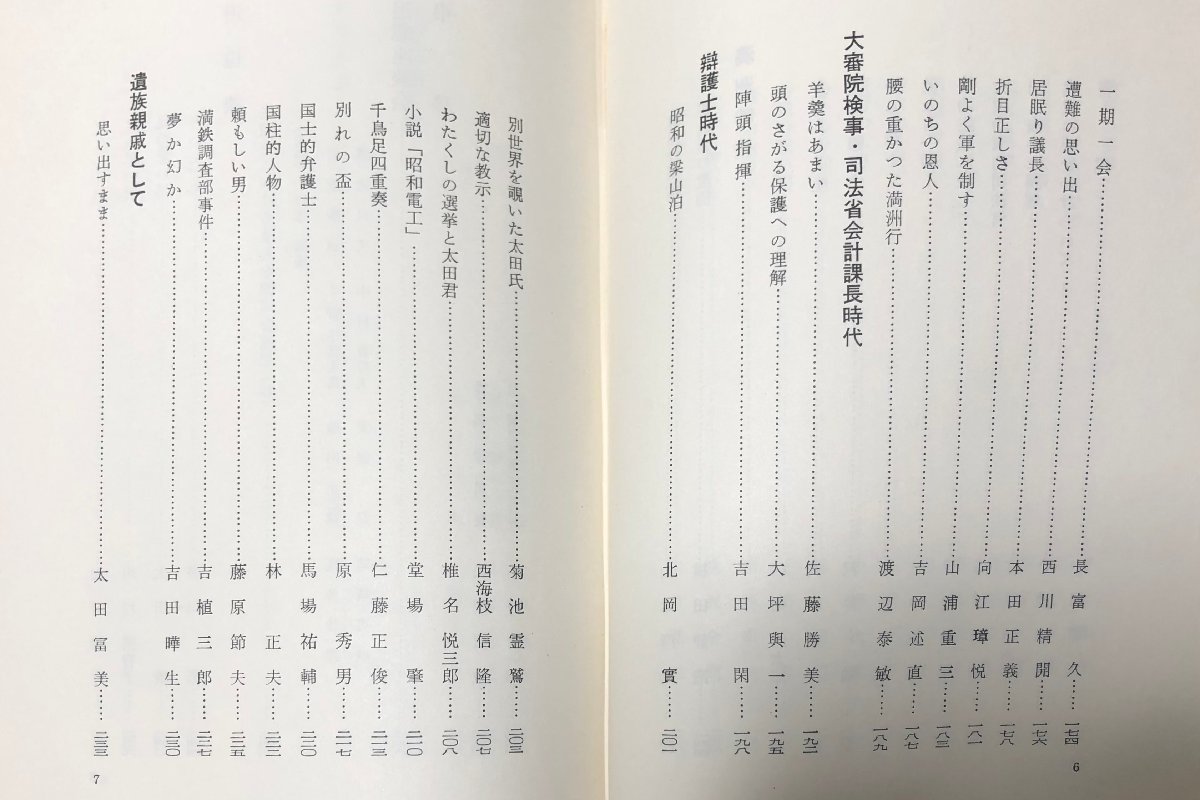 一期一会……長富久……一七四
遭難の思い出……西川精開……一七六
居眠り議長……本田正義……一七八
折目正しさ……向江璋悦……一八一
剛よく軍を制す……山浦重三……一八三
いのちの恩人……吉岡述直……一八七
腰の重かつた満洲行……渡辺泰敏……一八九
大審院検事・司法省会計課長時代
羊羹はあまい……佐藤勝美……一九二
頭のさがる保護への理解……大坪與一……一九五
陣頭指揮……吉田閑……一九八
辯護士時代
昭和の梁山泊……北岡實……二〇一
6
別世界を覗いた太田氏……菊池霊鷲……二〇三
適切な教示……西海枝信隆……二〇七
わたくしの選挙と太田君……椎名悦三郎……二〇八
小説「昭和電工」……堂場肇……二一〇
千鳥足四重奏……仁藤正俊……二一三
別れの盃……原秀男……二一七
国士的弁護士……馬場祐輔……二二〇
国柱的人物……林正夫……二二二
頼もしい男……藤原節夫……二二五
満鉄調査部事件……吉植三郎……二二七
夢か幻か……吉田曄生……二三〇
遺族親戚として
思い出すまま……太田冨美……二三三
7